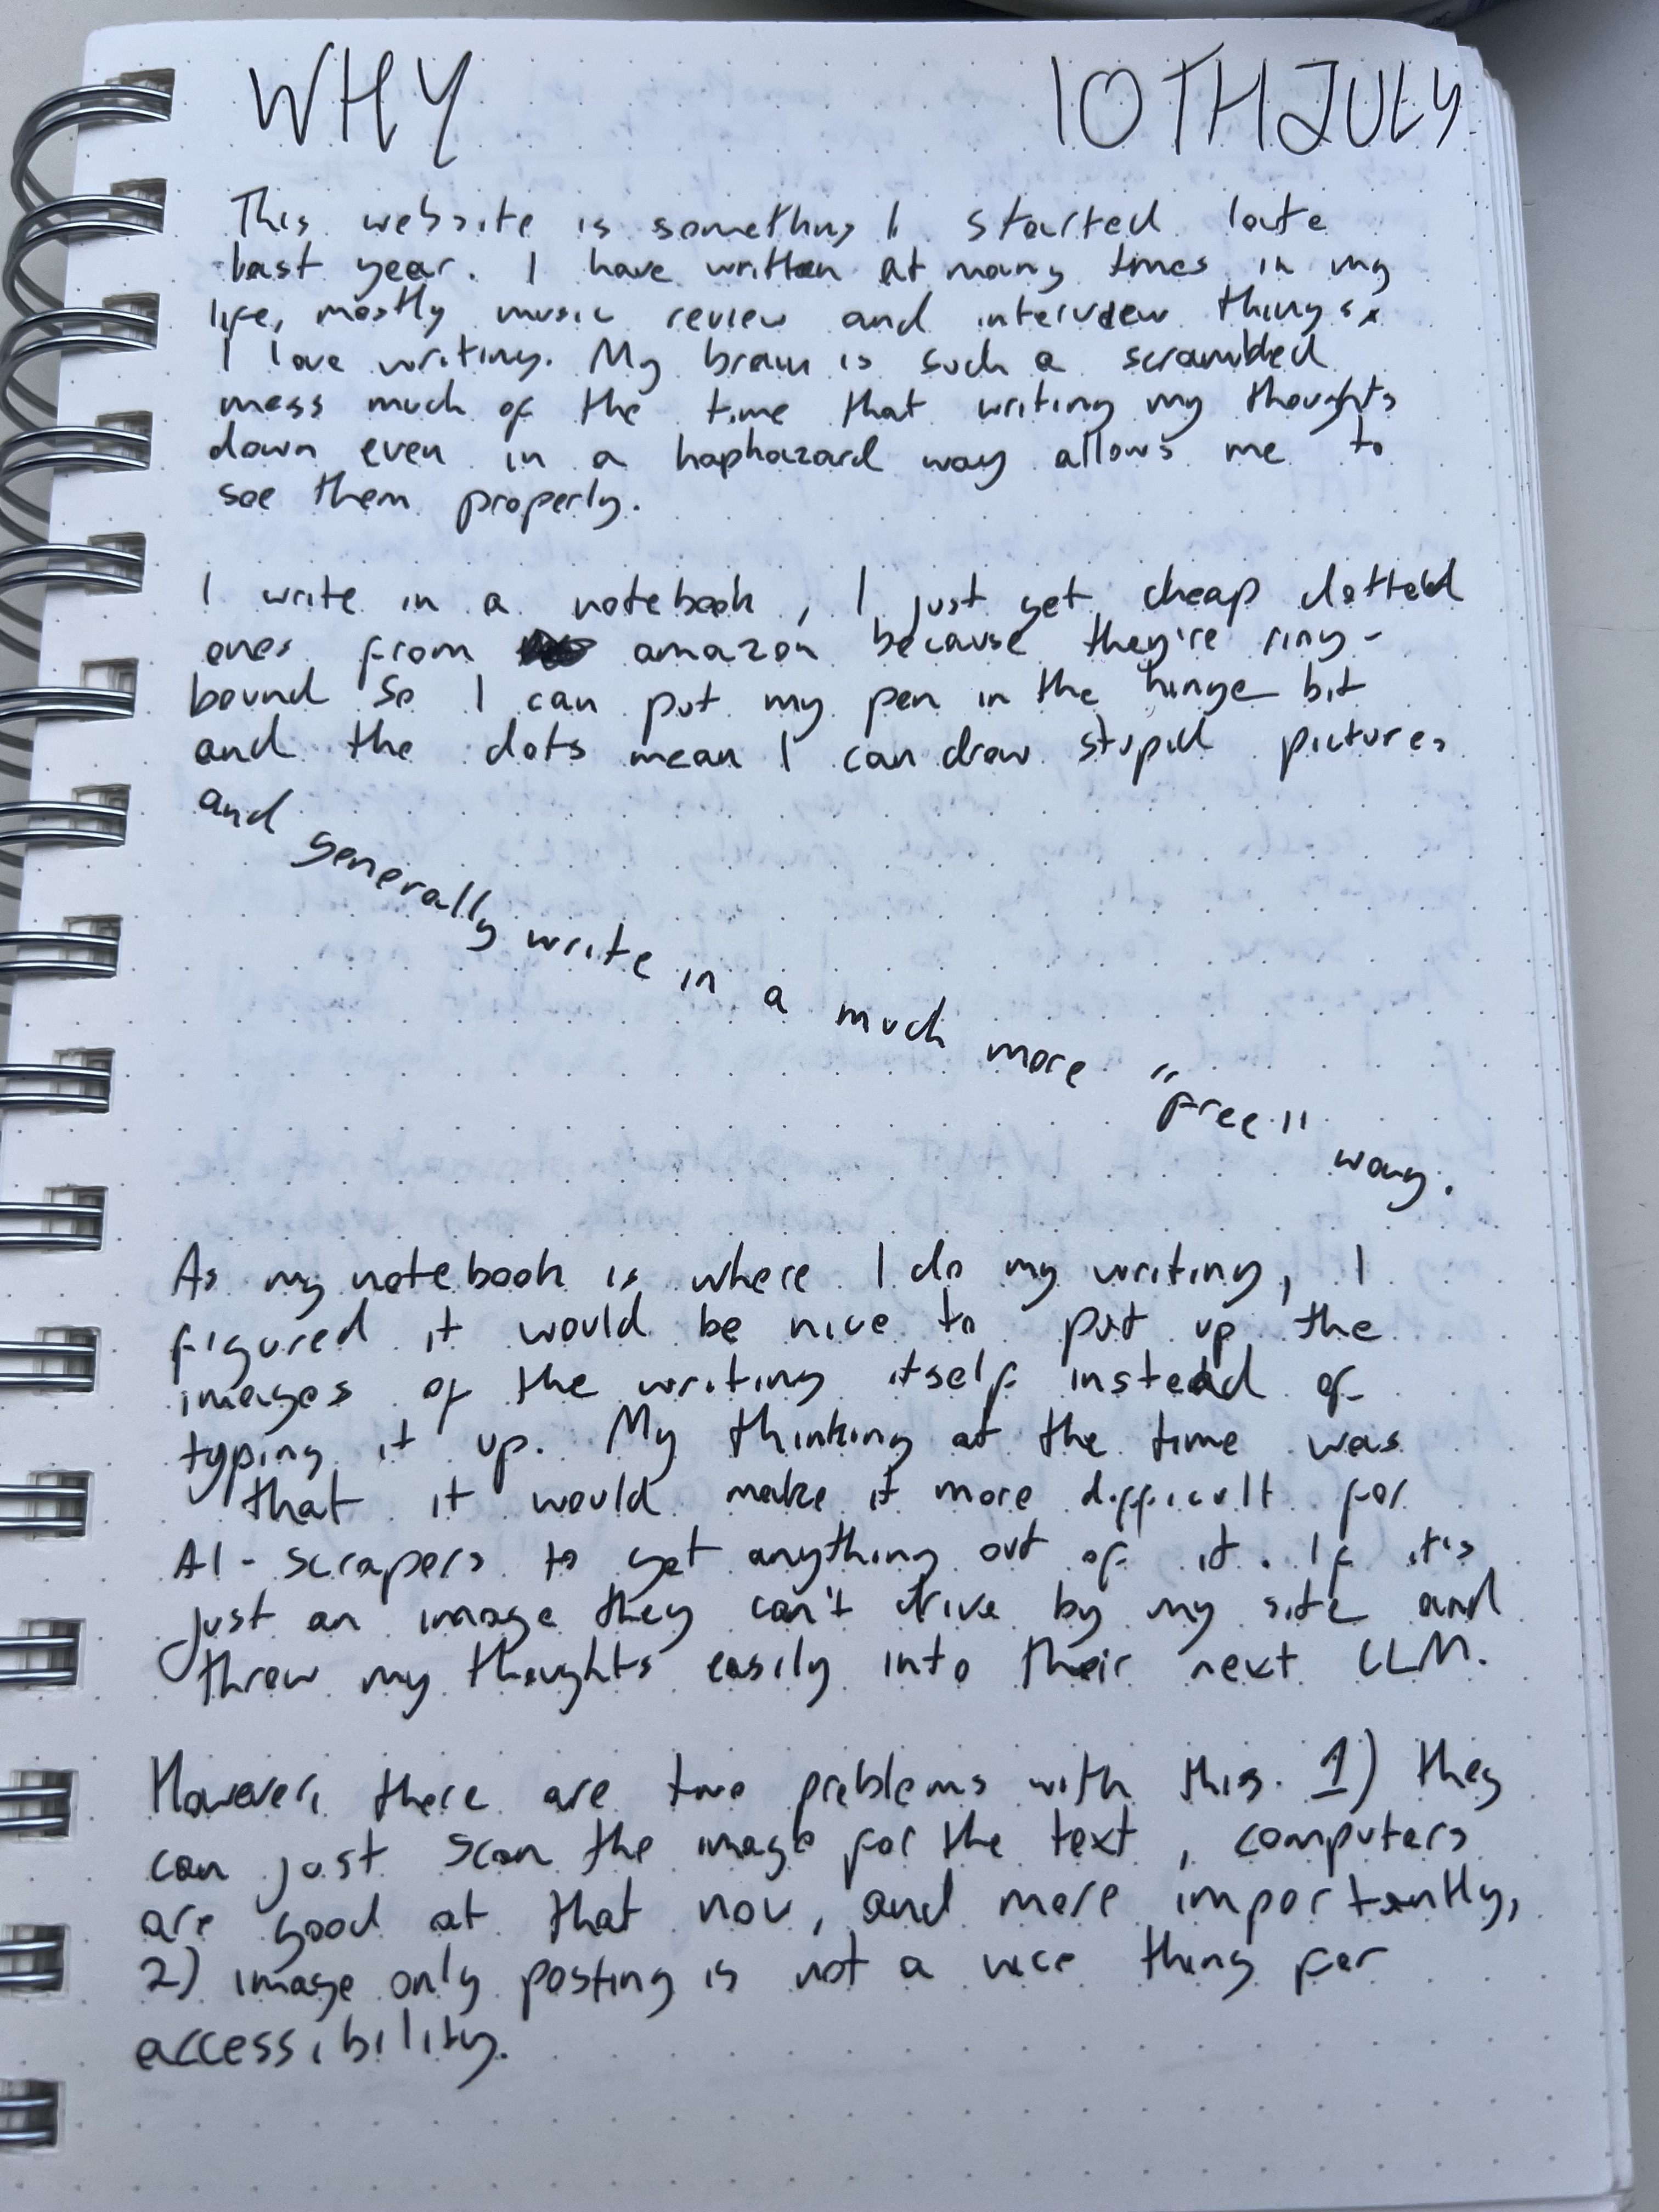 WHY 10TH JULY
This website is something I started late
last year. I have written at many times in my
life, mostly music review and interview things.
I love writing. My brain is such a scrambled
mess much of the time that writing my thoughts
down even in a haphazard way allows me to
see them properly.
I write in a notebook, I just get cheap dotted
ones from amazon because they're ring-
bound so I can put my pen in the hinge bit
and the dots mean I can draw stupid pictures
and generally write in a much more "free" way.
As my notebook is where I do my writing, I
figured it would be nice to put up the
images of the writing itself instead of
typing it up. My thinking at the time was
that it would make it more difficult for
AI-scrapers to get anything out of it. If it's
just an image they can't drive by my site and
throw my thoughts easily into their next LLM.
However, there are two problems with this. 1) they
can just scan the image for the text, computers
are good at that now, and more importantly,
2) image only posting is not a nice thing for
accessibility.